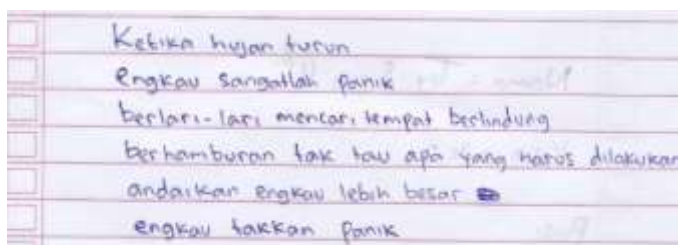 Ketika hujan turun
engkau sangatlah panik
berlari-lari mencari tempat berlindung
berhamburan tak tau apa yang harus dilakukan
andaikan engkau lebih besar
engkau takkan panik